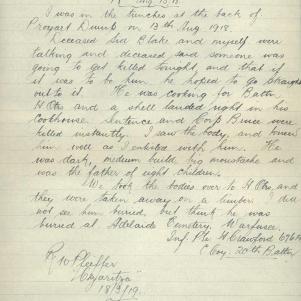 I was in the trenches at the back of
Proyart Dump on 13th Aug 1918.
Deceased Sid Clake and myself were
talking and deceased said someone was
going to get killed tonight and that if
it was to be him he hoped to go straight
out to it. He was cooking for Battn
H Qtrs and a shell landed right in his
cookhouse. Sentence and Corp Bruce were
killed instantly. I saw the body, and knew
him well as I enlisted with him. He
was dark, medium build, big moustache and
was the father of eight children.
We took the bodies over to H Qtrs, and
they were taken away on a limber. I did
not see him buried, but think he was
buried at Adelaide Cemetery, Warfusee.
Inf. Pte H. Crawford
C Coy. 20th Battn
R W Pfeiffer
"Czaritza"
18/9/19.